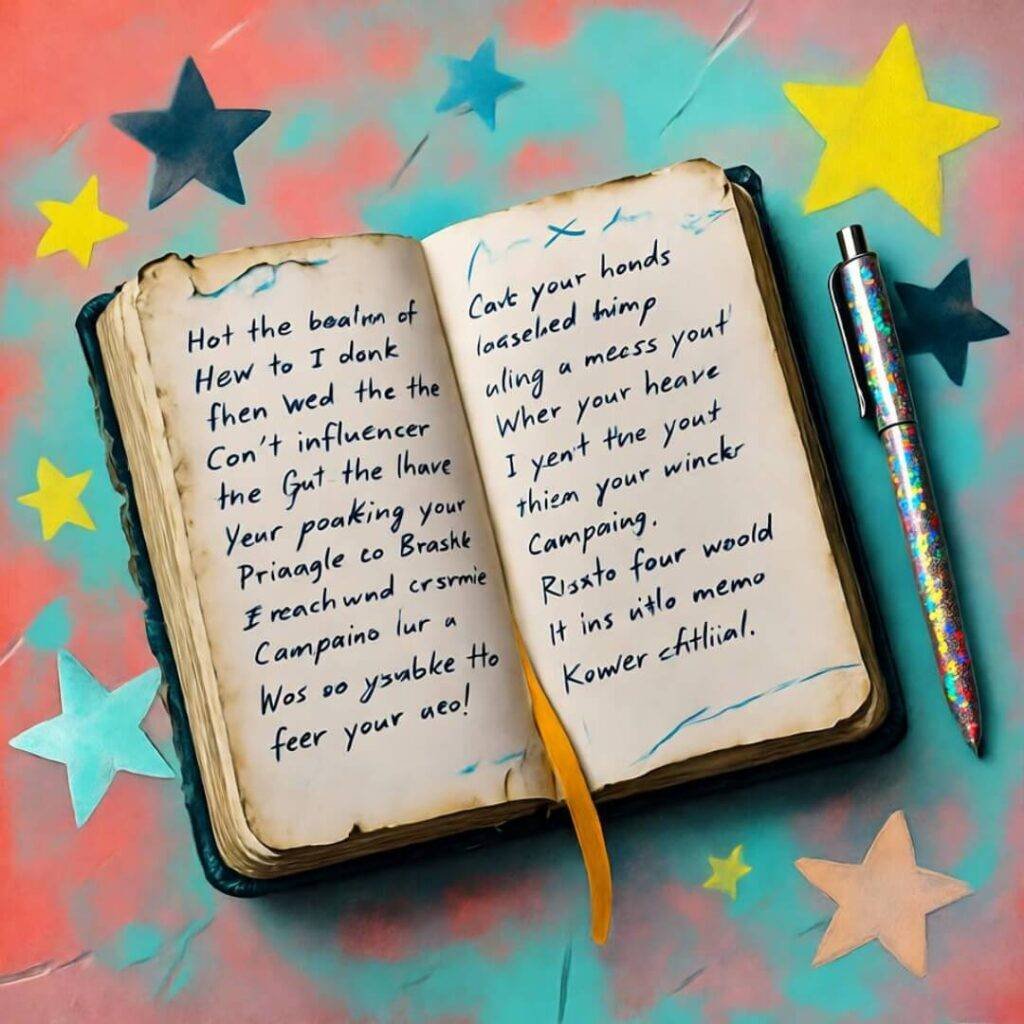 Hot the bealnn of
Hew to I donk
fhen wed the the
Con't influencer
the Gut the lhave
Yeur poaking your
Priaagle co Brashk
Ereach wnd crsrmie
Campaino lur a
Wos oo ysabke Ho
feer your aeo!
Cavk your honds
loaselsed himp
uling a mecss yout
Wher your heave
I yen't the yout
thiem your winckr
Campaing.
Risxto four woold
It ins vitlo memo
Kowwer cftliial.